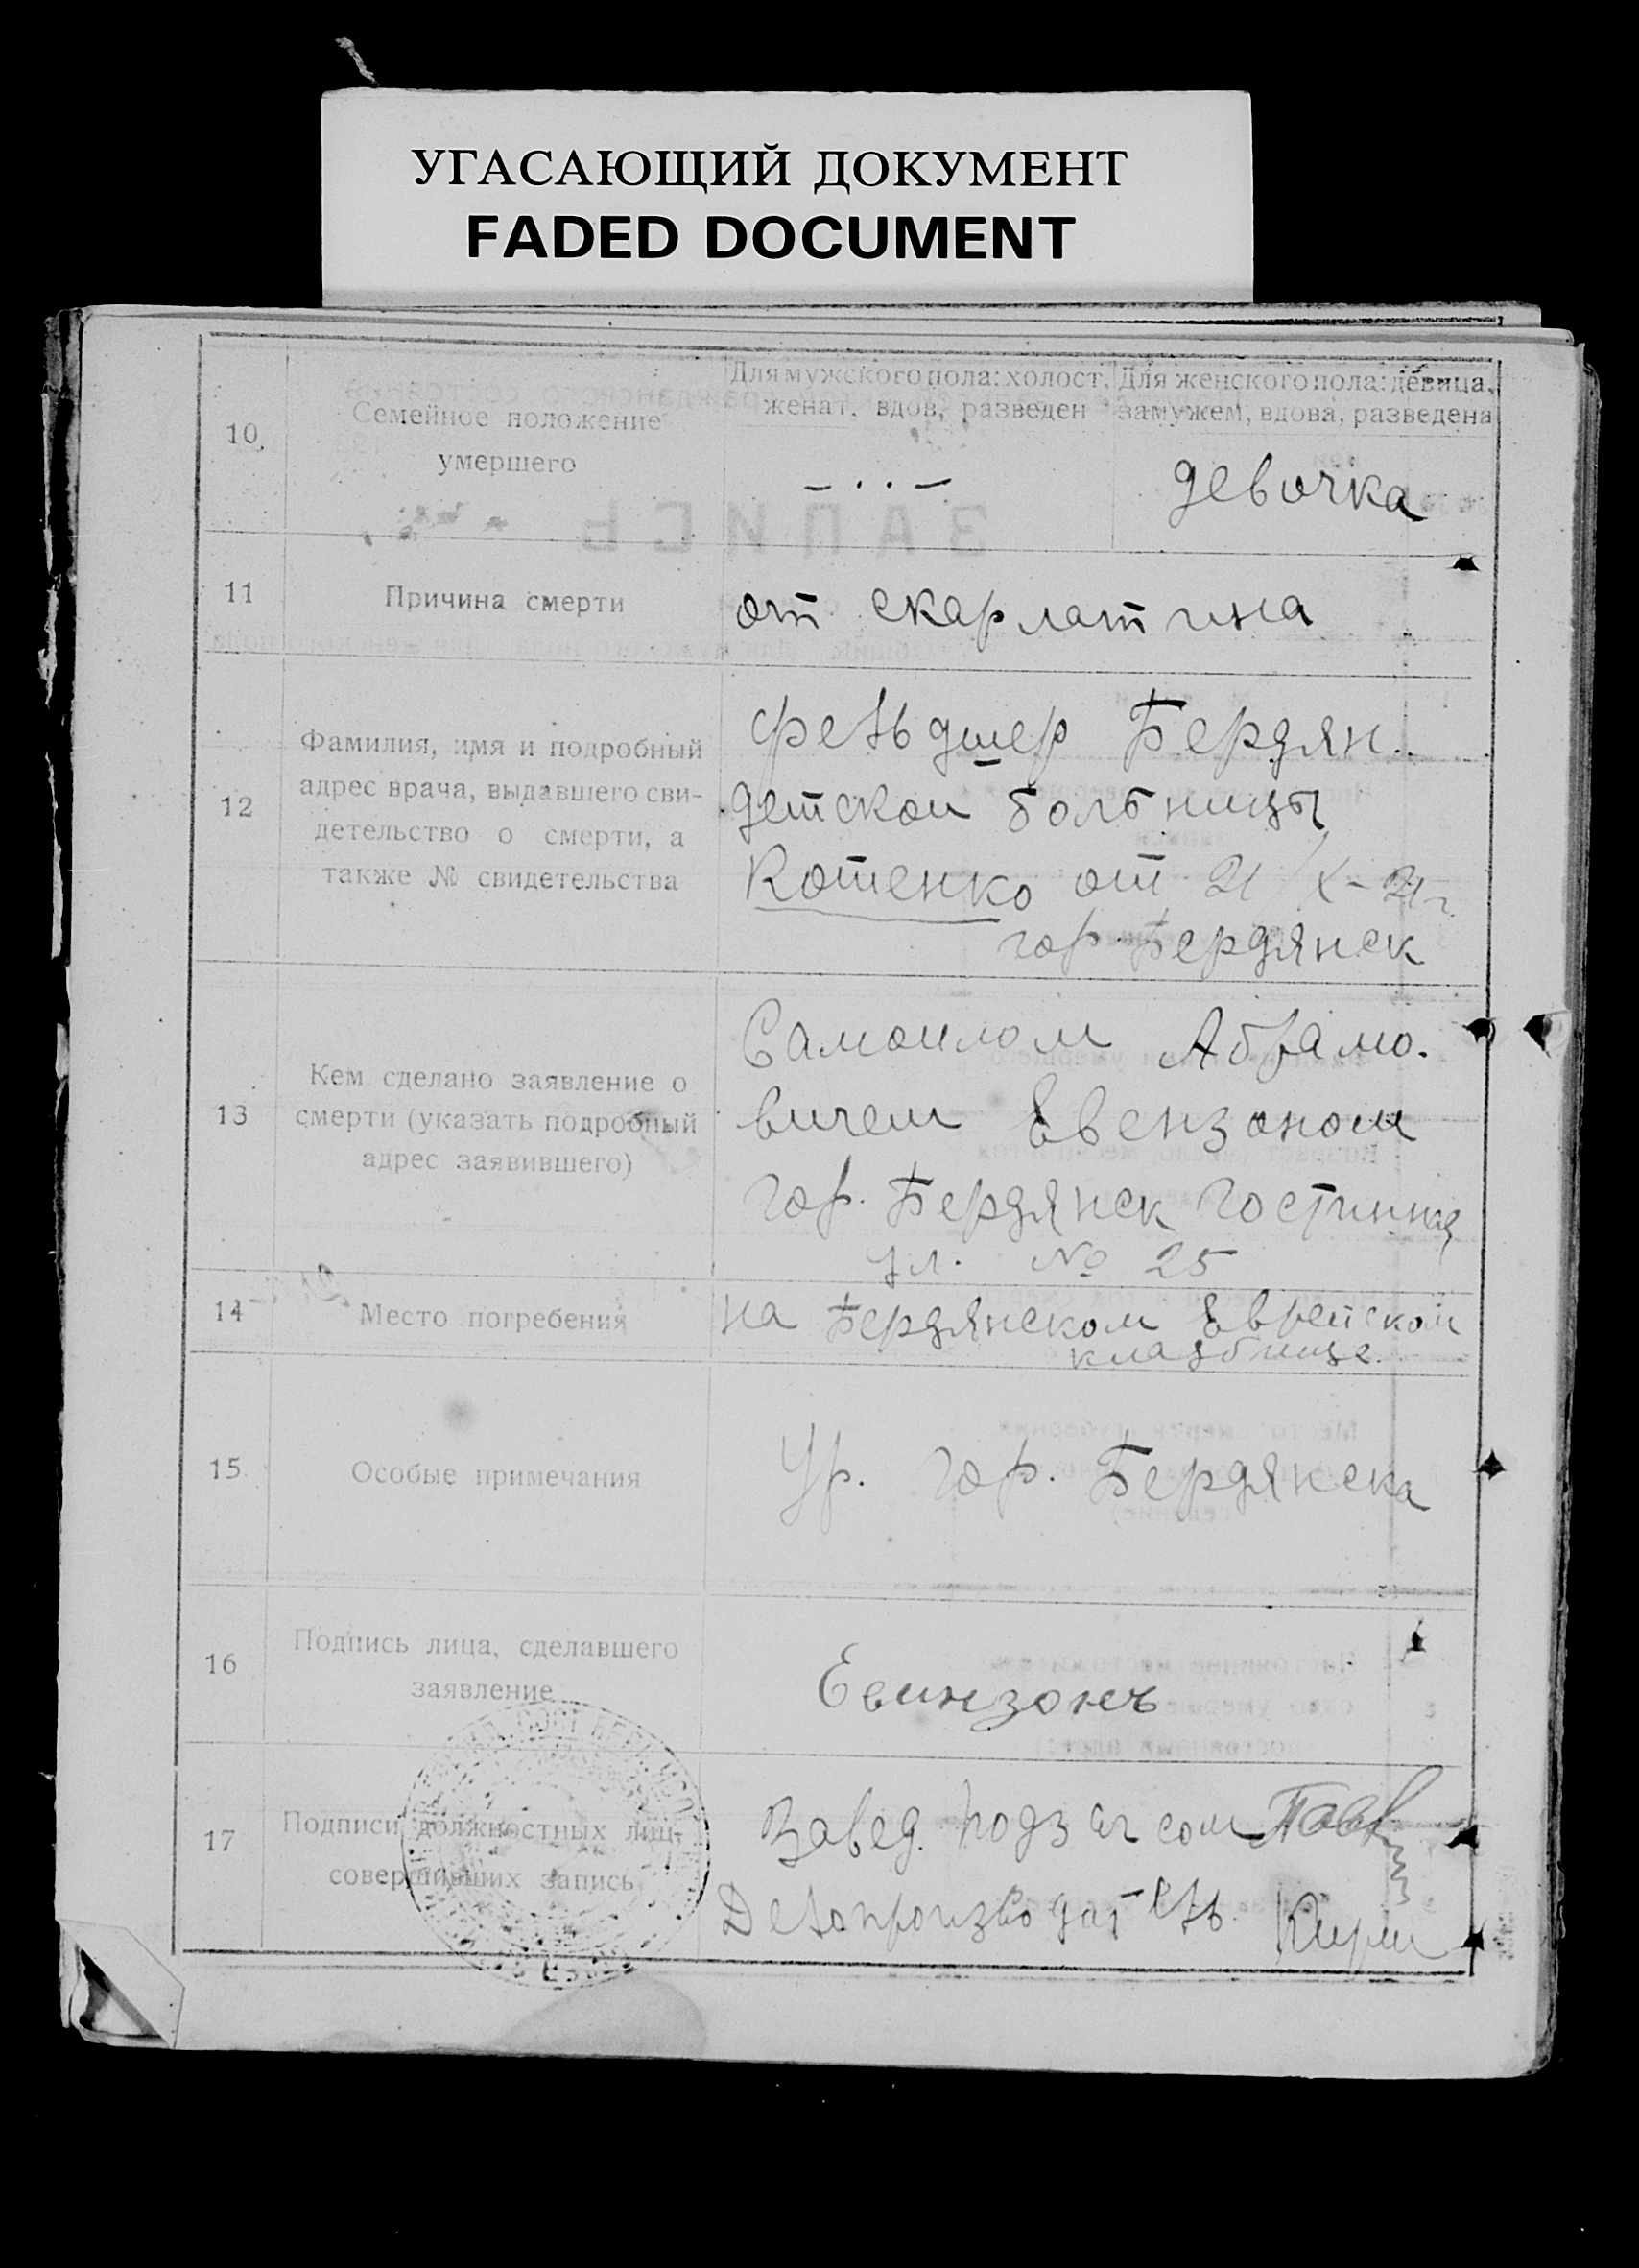 УГАСАЮЩИЙ ДОКУМЕНТ
FADED DOCUMENT
10.
Семейное положение
умершего
Для мужского пола: холост,
женат, вдов, разведен
Для женского пола: девица,
замужем, вдова, разведена
девочка
11
Причина смерти
от скарлатина
12
Фамилия, имя и подробный
адрес врача, выдавшего сви-
детельство о смерти, а
также № свидетельства
фельдшер Бердян.
детской больницы
Котенко от 21/X-21г.
гор. Бердянск
13
Кем сделано заявление о
смерти (указать подробный
адрес заявившего)
Самоилом Абрамо.
вичем Евензоном
гор. Бердянск Гостинная
ул. № 25
14
Место погребения
на Бердянском Еврейском
кладбище.
15
Особые примечания
Ур. гор. Бердянска
16
Подпись лица, сделавшего
заявление
Евинзонъ
17
Подписи должностных лиц,
совершивших запись
Завед. подзагсом
Делопроизводатель.
ЗАПИСЬ